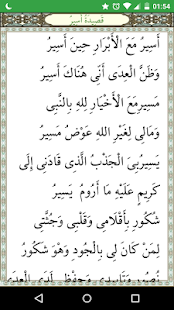 01:54
قَصِيدَةُ أَسِيرُ
أَسِيرُ مَعَ الْأَبْرَارِ حِينَ أَسِيرُ
وَظَنَّ الْعِدَى أَنِّى هُنَاكَ أَسِيرُ
مَسِيرِى مَعَ الْأَخْيَارِ لِلهِ بِالنَّبِى
وَمَالِى لِغَيْرِ اللهِ عَوْضُ مَسِيرُ
يَسِيرُ بِىَ الْجَذْبُ الَّذِى قَادَنِى إِلَى
كَرِيمٍ عَلَيْهِ مَا أَرُومُ يَسِيرُ
شَكُورٍ بِأَقْلَامِى وَقَلْبِى وَجُثَّتِى
لِمَنْ كَانَ لِى بِالْجُودِ وَهْوَ شَكُورُ